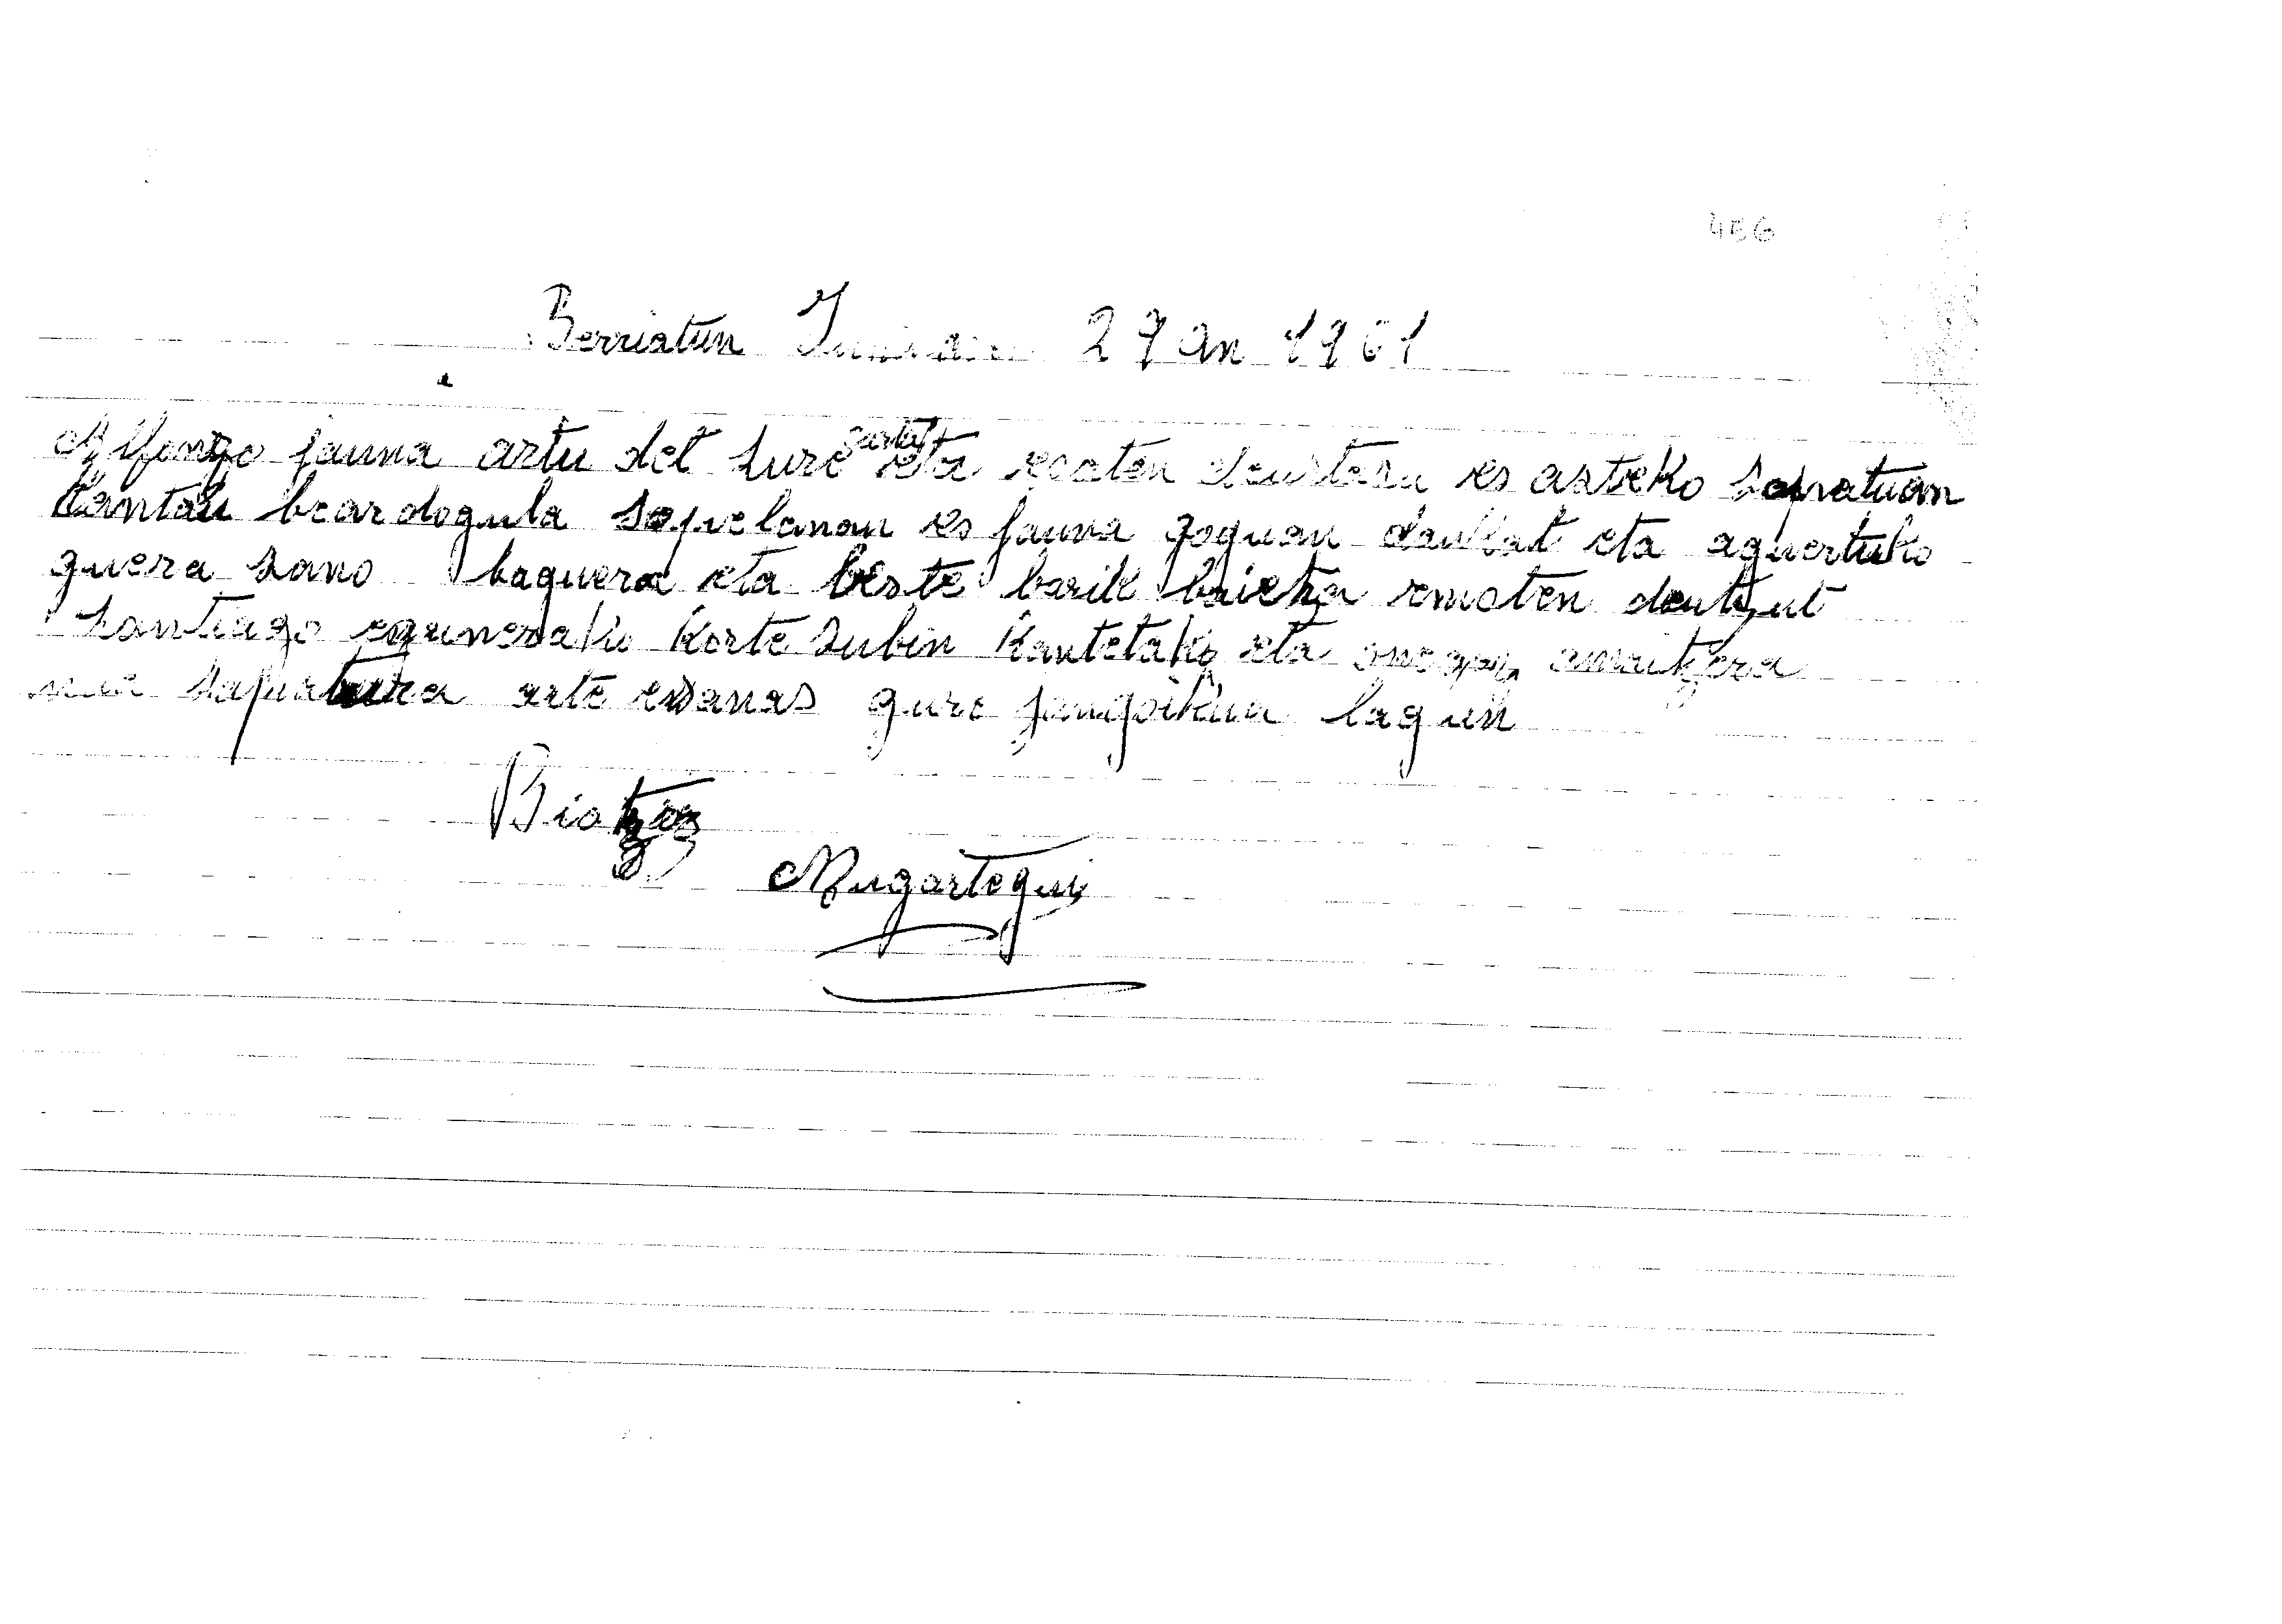 456
Berriatun 27 an 1961
Alfonzo jauna artu det zure karta eta esaten deustazu es asteko zapatuan
Kantau bear dogula sopelanan es jauna goguan daukat eta aguertuko
guera sano baguera eta beste barik baietza emoten deutzut
santiago egunerako Korte subin Kantetako eta onegaz amaitzera
nua sapatura arte esanas gure jangoikua lagun
Biotzez
Mugartegui